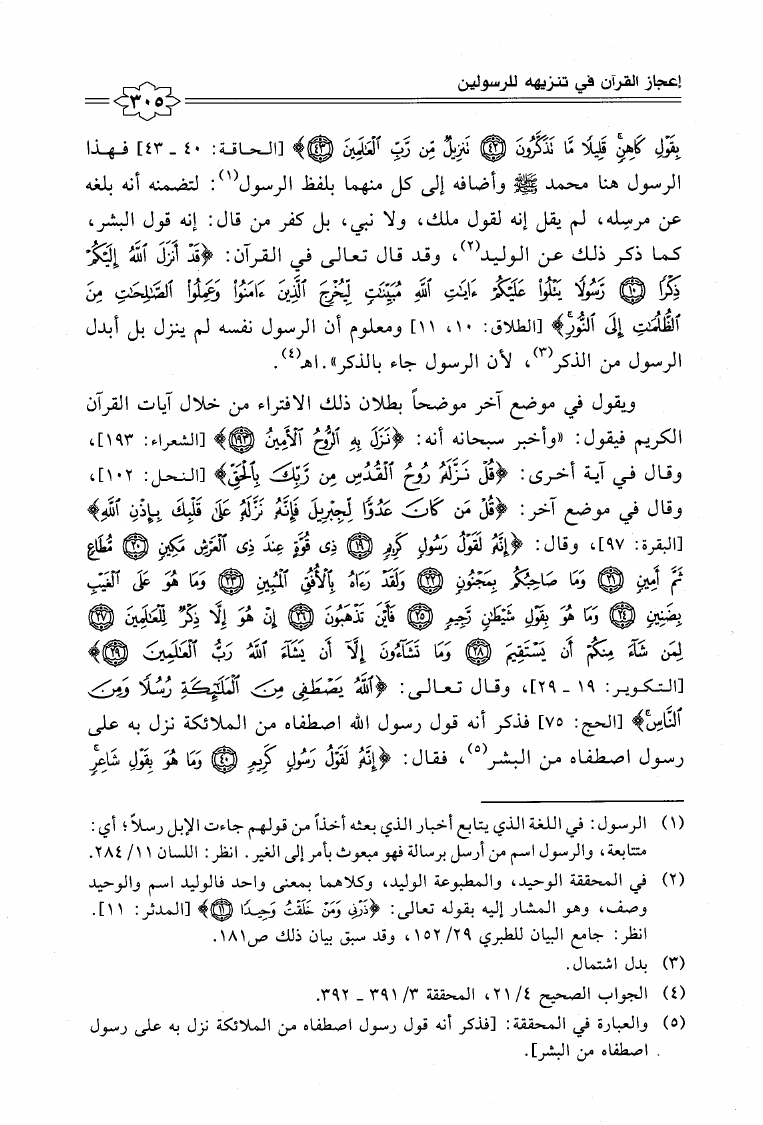 إعجاز القرآن في تنزيهه للرسولين
٣٠٥
بِقَوْلِ كَاهِنٍ قَلِيلًا مَّا تَذَكَّرُونَ ﴿٤٢﴾ تَنزِيلٌ مِّن رَّبِّ الْعَالَمِينَ ﴿٤٣﴾﴾ [الحاقة: ٤٠ ـ ٤٣] فهذا
الرسول هنا محمد ﷺ وأضافه إلى كل منهما بلفظ الرسول(١): لتضمنه أنه بلغه
عن مرسِله، لم يقل إنه لقول ملك، ولا نبي، بل كفر من قال: إنه قول البشر،
كما ذكر ذلك عن الوليد(٢)، وقد قال تعالى في القرآن: ﴿قَدْ أَنزَلَ اللَّهُ إِلَيْكُمْ
ذِكْرًا ﴿١٠﴾ رَّسُولًا يَتْلُوا عَلَيْكُمْ ءَايَاتِ اللَّهِ مُبَيِّنَاتٍ لِّيُخْرِجَ الَّذِينَ ءَامَنُوا وَعَمِلُوا الصَّالِحَاتِ مِنَ
الظُّلُمَاتِ إِلَى النُّورِ﴾ [الطلاق: ١٠، ١١] ومعلوم أن الرسول نفسه لم ينزل بل أبدل
الرسول من الذكر(٣)، لأن الرسول جاء بالذكر». اهـ(٤).
ويقول في موضع آخر موضحاً بطلان ذلك الافتراء من خلال آيات القرآن
الكريم فيقول: «وأخبر سبحانه أنه: ﴿نَزَلَ بِهِ الرُّوحُ الْأَمِينُ ﴿١٩٣﴾﴾ [الشعراء: ١٩٣]،
وقال في آية أخرى: ﴿قُلْ نَزَّلَهُ رُوحُ الْقُدُسِ مِن رَّبِّكَ بِالْحَقِّ﴾ [النحل: ١٠٢]،
وقال في موضع آخر: ﴿قُلْ مَن كَانَ عَدُوًّا لِّجِبْرِيلَ فَإِنَّهُ نَزَّلَهُ عَلَىٰ قَلْبِكَ بِإِذْنِ اللَّهِ﴾
[البقرة: ٩٧]، وقال: ﴿إِنَّهُ لَقَوْلُ رَسُولٍ كَرِيمٍ ﴿١٩﴾ ذِى قُوَّةٍ عِندَ ذِى الْعَرْشِ مَكِينٍ ﴿٢٠﴾ مُّطَاعٍ
ثَمَّ أَمِينٍ ﴿٢١﴾ وَمَا صَاحِبُكُم بِمَجْنُونٍ ﴿٢٢﴾ وَلَقَدْ رَءَاهُ بِالْأُفُقِ الْمُبِينِ ﴿٢٣﴾ وَمَا هُوَ عَلَى الْغَيْبِ
بِضَنِينٍ ﴿٢٤﴾ وَمَا هُوَ بِقَوْلِ شَيْطَانٍ رَّجِيمٍ ﴿٢٥﴾ فَأَيْنَ تَذْهَبُونَ ﴿٢٦﴾ إِنْ هُوَ إِلَّا ذِكْرٌ لِّلْعَالَمِينَ ﴿٢٧﴾
لِمَن شَآءَ مِنكُمْ أَن يَسْتَقِيمَ ﴿٢٨﴾ وَمَا تَشَآءُونَ إِلَّآ أَن يَشَآءَ اللَّهُ رَبُّ الْعَالَمِينَ ﴿٢٩﴾﴾
[التكوير: ١٩ ـ ٢٩]، وقال تعالى: ﴿اللَّهُ يَصْطَفِى مِنَ الْمَلَٰئِكَةِ رُسُلًا وَمِنَ
النَّاسِ﴾ [الحج: ٧٥] فذكر أنه قول رسول الله اصطفاه من الملائكة نزل به على
رسول اصطفاه من البشر(٥)، فقال: ﴿إِنَّهُ لَقَوْلُ رَسُولٍ كَرِيمٍ ﴿٤٠﴾ وَمَا هُوَ بِقَوْلِ شَاعِرٍ
(١) الرسول: في اللغة الذي يتابع أخبار الذي بعثه أخذاً من قولهم جاءت الإبل رسلاً؛ أي:
متتابعة، والرسول اسم من أرسل برسالة فهو مبعوث بأمر إلى الغير. انظر: اللسان ١١/ ٢٨٤.
(٢) في المحققة الوحيد، والمطبوعة الوليد، وكلاهما بمعنى واحد فالوليد اسم والوحيد
وصف، وهو المشار إليه بقوله تعالى: ﴿ذَرْنِى وَمَنْ خَلَقْتُ وَحِيدًا ﴿١١﴾﴾ [المدثر: ١١].
انظر: جامع البيان للطبري ٢٩/ ١٥٢، وقد سبق بيان ذلك ص١٨١.
(٣) بدل اشتمال.
(٤) الجواب الصحيح ٤/ ٢١، المحققة ٣/ ٣٩١ ـ ٣٩٢.
(٥) والعبارة في المحققة: [فذكر أنه قول رسول اصطفاه من الملائكة نزل به على رسول
اصطفاه من البشر].